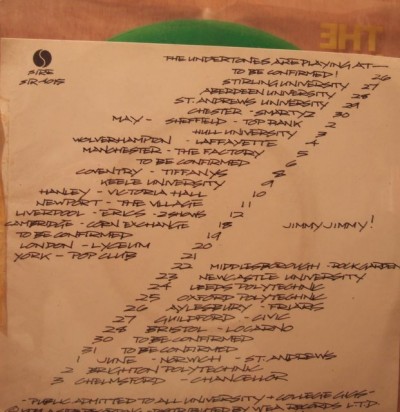 THE
SIRE
SIR-4015
THE UNDERTONES ARE PLAYING AT—
TO BE CONFIRMED! 26
STIRLING UNIVERSITY 27
ABERDEEN UNIVERSITY 28
ST. ANDREWS UNIVERSITY 29
CHESTER - SMARTYZ 30
MAY - SHEFFIELD - TOP RANK 2
HULL UNIVERSITY 3
WOLVERHAMPTON - LAFAYETTE 4
MANCHESTER - THE FACTORY 5
TO BE CONFIRMED 6
COVENTRY - TIFFANYS 8
KEELE UNIVERSITY 9
HANLEY - VICTORIA HALL 10
NEWPORT - THE VILLAGE 11
LIVERPOOL - ERICS - 2 SHOWS 12
CAMBRIDGE - CORN EXCHANGE 18 JIMMY JIMMY!
TO BE CONFIRMED 19
LONDON - LYCEUM 20
YORK - POP CLUB 21
22 MIDDLESBOROUGH - ROCK GARDEN
23 NEWCASTLE UNIVERSITY
24 LEEDS POLYTECHNIC
25 OXFORD POLYTECHNIC
26 AYLESBURY - FRIARS
27 GUILDFORD - CIVIC
28 BRISTOL - LOCARNO
30 TO BE CONFIRMED
31 TO BE CONFIRMED
1 JUNE - NORWICH - ST. ANDREWS
2 BRIGHTON POLYTECHNIC
3 CHELMSFORD - CHANCELLOR
- PUBLIC ADMITTED TO ALL UNIVERSITY + COLLEGE GIGS -
DISTRIBUTED BY WEA RECORDS LTD.